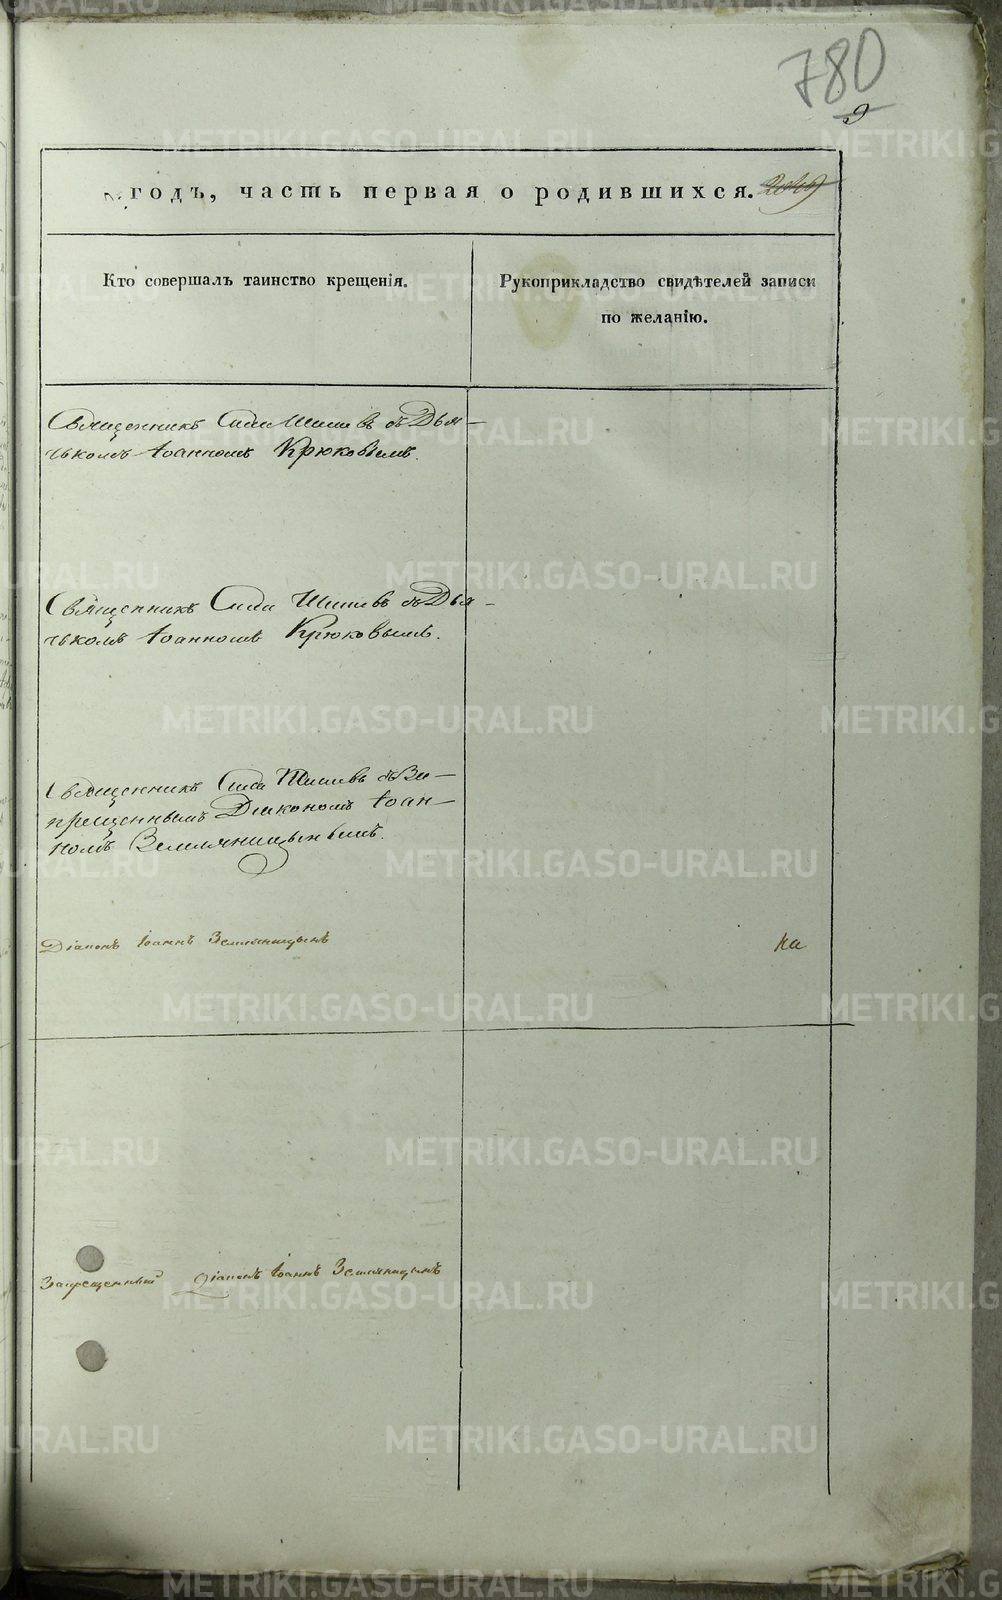 780
9
годъ, часть первая о родившихся.
Кто совершалъ таинство крещенія.
Рукоприкладство свидѣтелей записи
по желанію.
Священникъ Сила съ Дья-
чькомъ Іоанномъ Крюковымъ.
Священникъ Сила съ Дья-
чькомъ Іоанномъ Крюковымъ.
Священникъ Сила съ За-
прещеннымъ Діакономъ Іоан-
номъ Земляницынымъ.
Діаконъ Іоаннъ Земляницынъ
на
Запрещенный Діаконъ Іоаннъ Земляницынъ
METRIKI.GASO-URAL.RU